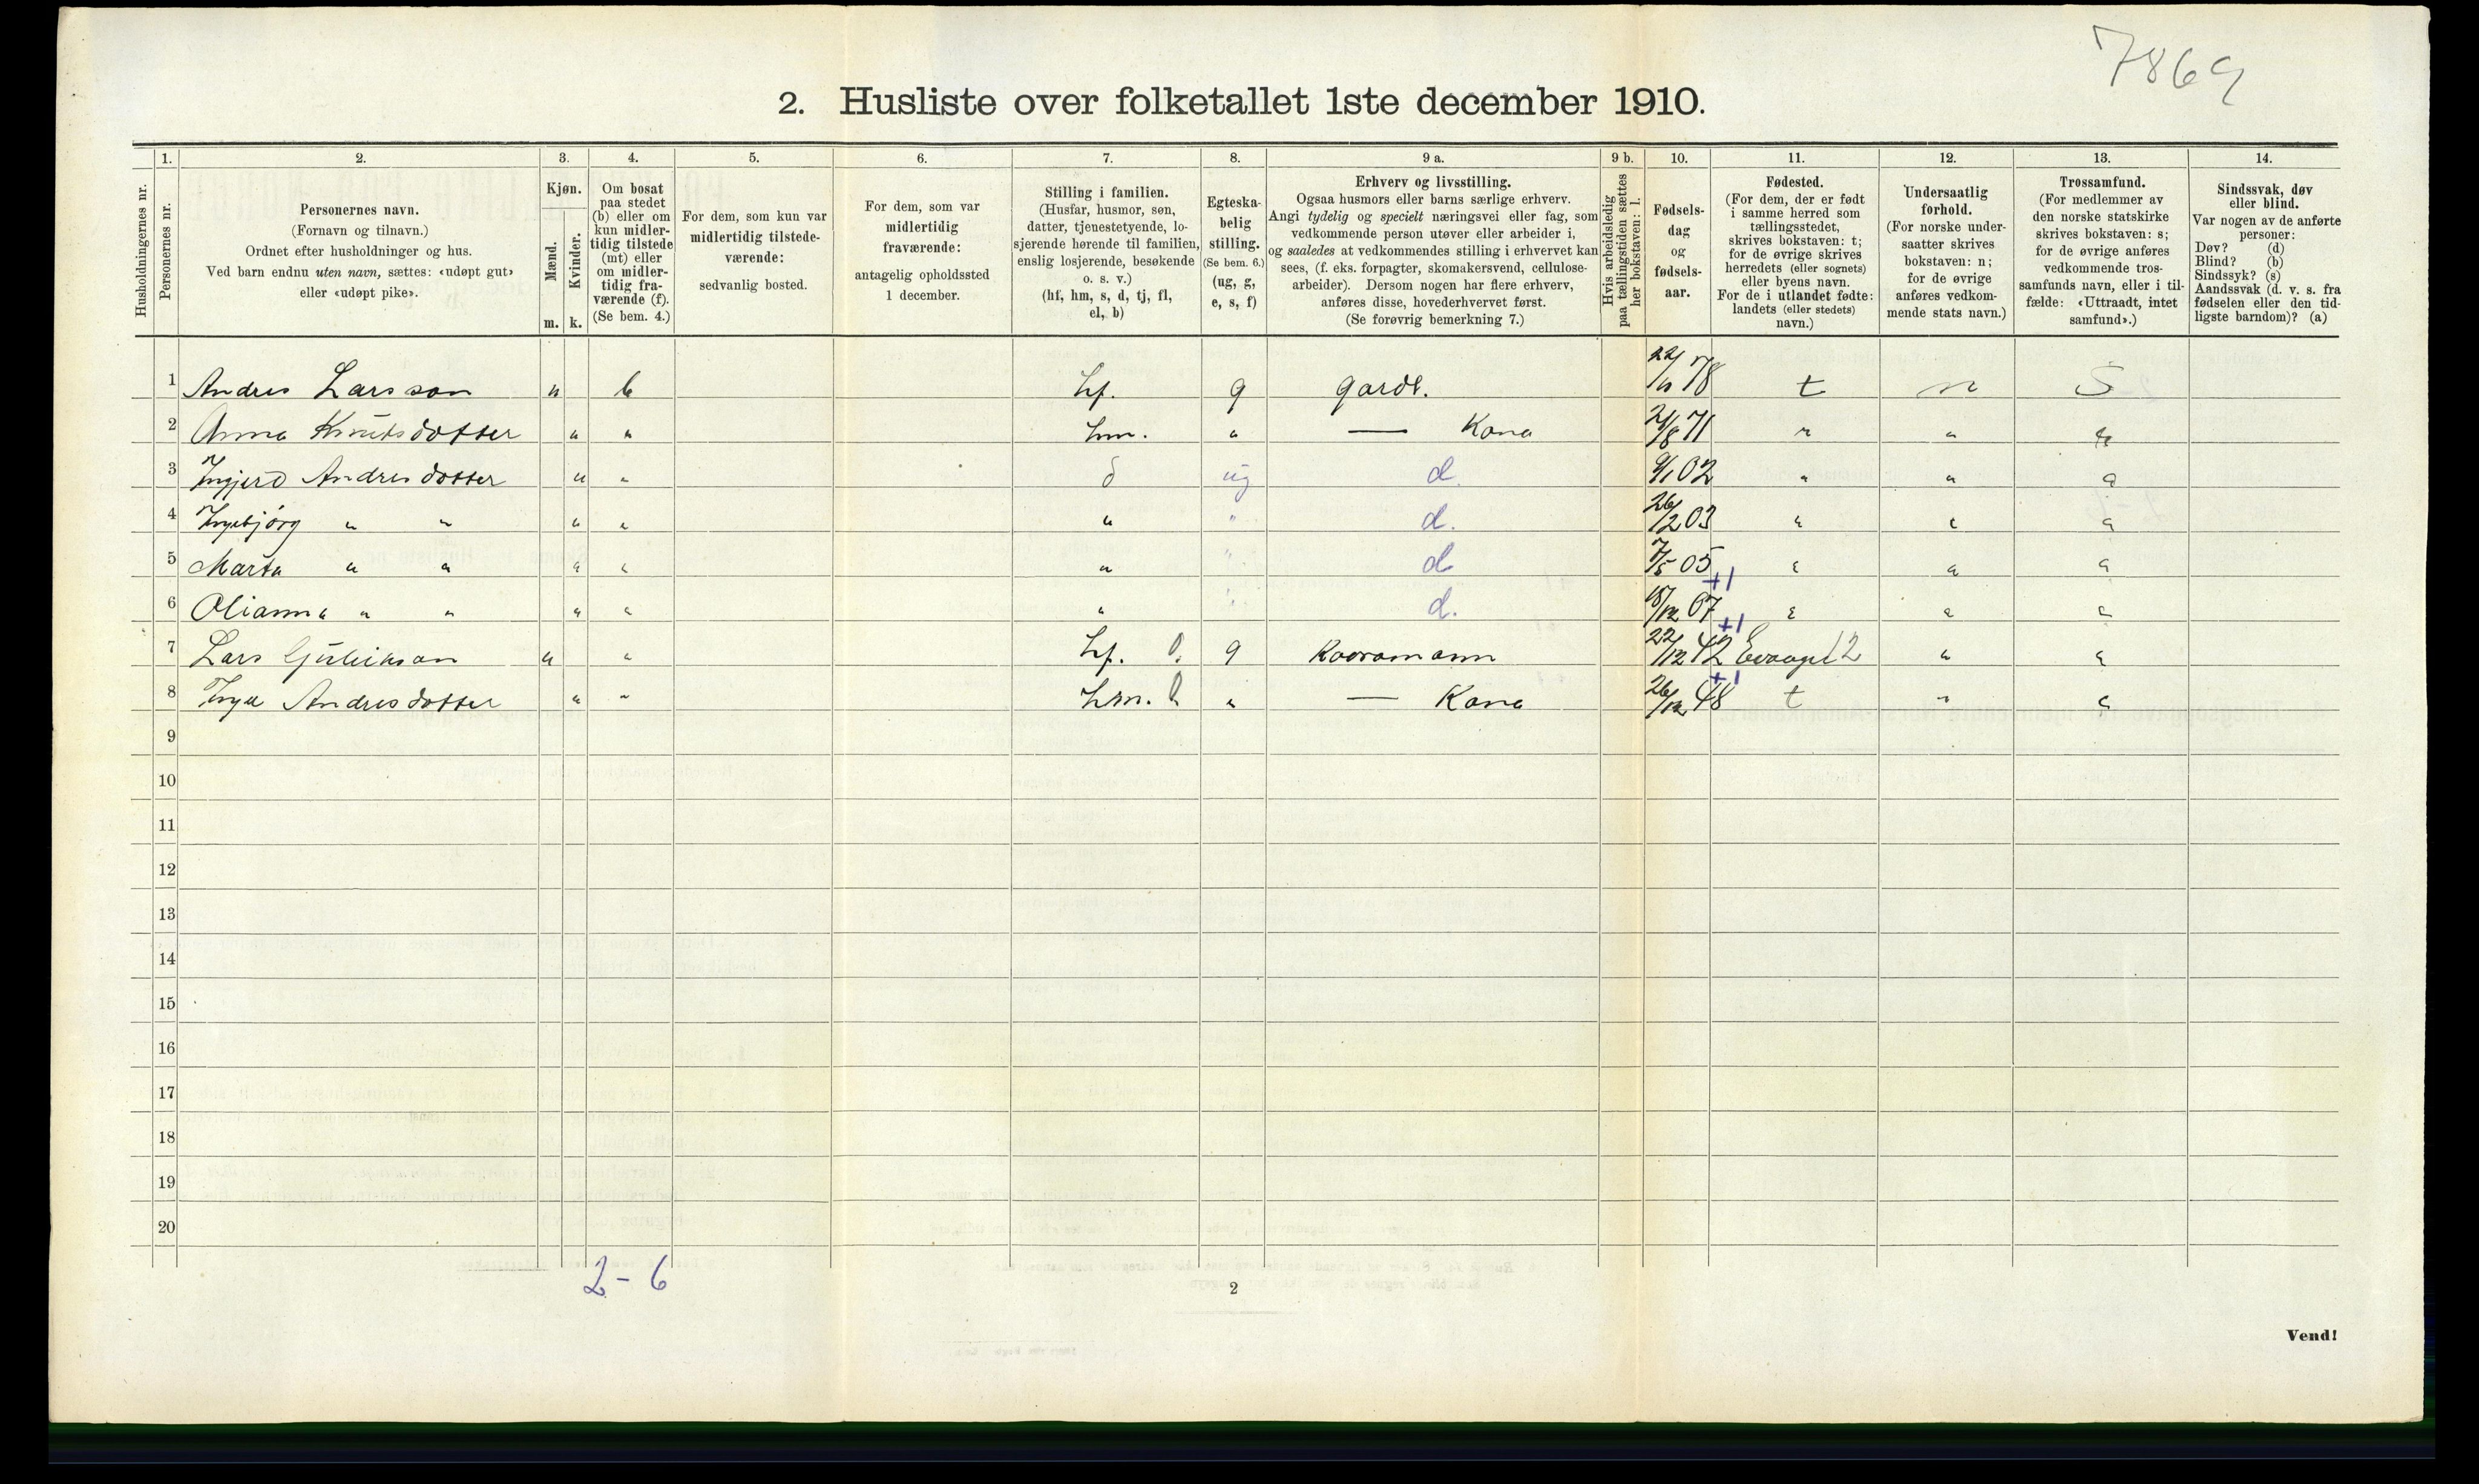 7869
2. Husliste over folketallet 1ste december 1910.
Husholdningernes nr.
1.
Personernes nr.
2.
Personernes navn.
(Fornavn og tilnavn.)
Ordnet efter husholdninger og hus.
Ved barn endnu uten navn, sættes: «udøpt gut»
eller «udøpt pike».
3.
Kjøn.
Mænd.
Kvinder.
m. k.
4.
Om bosat
paa stedet
(b) eller om
kun midler-
tidig tilstede
(mt) eller
om midler-
tidig fra-
værende (f).
(Se bem. 4.)
5.
For dem, som kun var
midlertidig tilstede-
værende:
sedvanlig bosted.
6.
For dem, som var
midlertidig
fraværende:
antagelig opholdssted
1 december.
7.
Stilling i familien.
(Husfar, husmor, søn,
datter, tjenestetyende, lo-
sjerende hørende til familien,
enslig losjerende, besøkende
o. s. v.)
(hf, hm, s, d, tj, fl,
el, b)
8.
Egteska-
belig
stilling.
(Se bem. 6.)
(ug, g,
e, s, f)
9 a.
Erhverv og livsstilling.
Ogsaa husmors eller barns særlige erhverv.
Angi tydelig og specielt næringsvei eller fag, som
vedkommende person utøver eller arbeider i,
og saaledes at vedkommendes stilling i erhvervet kan
sees, (f. eks. forpagter, skomakersvend, cellulose-
arbeider). Dersom nogen har flere erhverv,
anføres disse, hovederhvervet først.
(Se forøvrig bemerkning 7.)
9 b.
Hvis arbeidsledig
paa tællingstiden sættes
her bokstaven: l.
10.
Fødsels-
dag
og
fødsels-
aar.
11.
Fødested.
(For dem, der er født
i samme herred som
tællingsstedet,
skrives bokstaven: t;
for de øvrige skrives
herredets (eller sognets)
eller byens navn.
For de i utlandet fødte:
landets (eller stedets)
navn.)
12.
Undersaatlig
forhold.
(For norske under-
saatter skrives
bokstaven: n;
for de øvrige
anføres vedkom-
mende stats navn.)
13.
Trossamfund.
(For medlemmer av
den norske statskirke
skrives bokstaven: s;
for de øvrige anføres
vedkommende tros-
samfunds navn, eller i til-
fælde: «Uttraadt, intet
samfund».)
14.
Sindssvak, døv
eller blind.
Var nogen av de anførte
personer:
Døv? (d)
Blind? (b)
Sindssyk? (s)
Aandssvak (d. v. s. fra
fødselen eller den tid-
ligste barndom)? (a)
1 Andres Larsson " b hf. g gardb. t n S
2 Anna Knutsdotter " " hm. " — Kona 21/8 71 " " "
3 Ingjerd Andresdotter " " d ug d. 9/1 02 " " "
4 Ingebjörg " " " " " " d. 26/2 03 " " "
5 Marta " " " " " " d. 7/5 05 " " "
6 Olianna " " " " " " d. 07 +1 " " "
7 Lars " " hf. g 22/12 42 +1 " "
8 Andresdotter " " hm. " — Kona 26/12 48 +1 t " "
9
10
11
12
13
14
15
16
17
18
19
20
2-6
2
Vend!